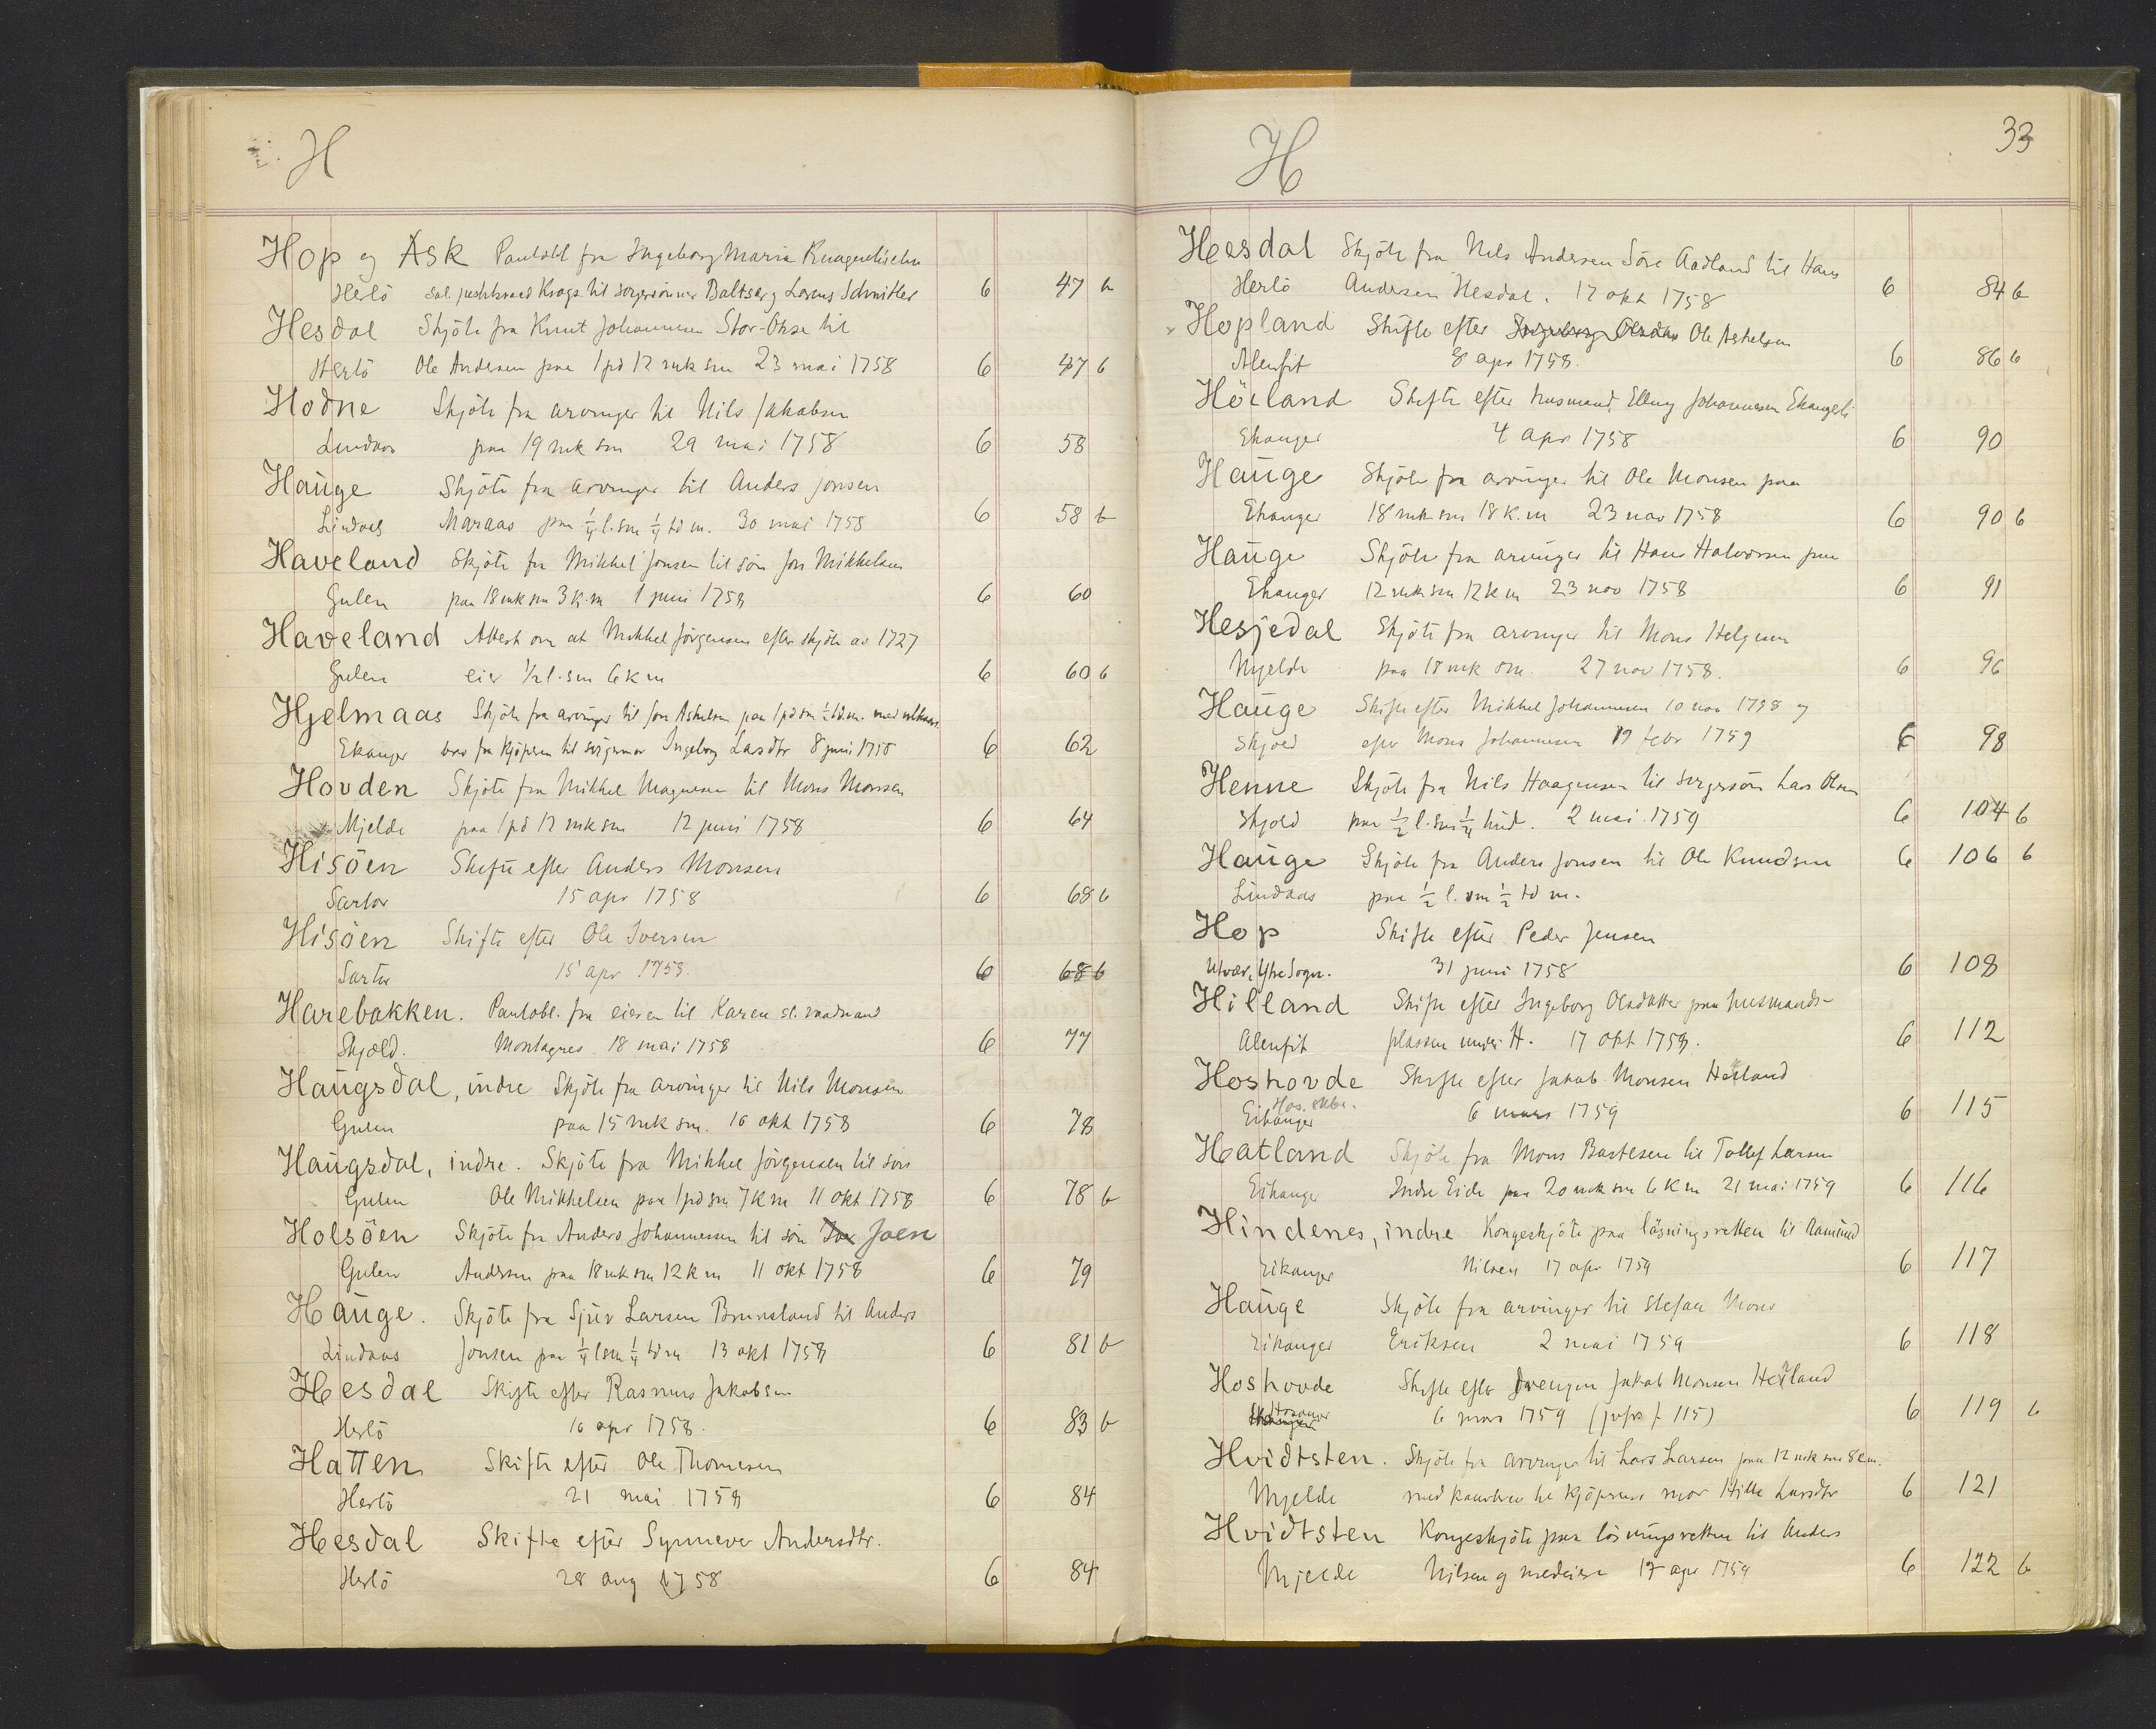 H
Hop og Ask Pantobl fra Ingeborg Maria
Herlö sal. justitsraad Krogs til svigersönner Baltser og Lorens Schnitler 6 47 b
Hesdal Skjöte fra Knut Johannesen Stor-Okse til
Herlö Ole Andersen paa 1 pd 12 mk sm 23 mai 1758 6 47 b
Hodne Skjöte fra arvinger til Nils Jakobsen
Lindaas paa 19 mk sm 29 mai 1758 6 58
Hauge Skjöte fra arvinger til Anders Jonsen
Lindaas Maraas paa ¼ l. sm ¼ td m. 30 mai 1758 6 58 b
Haveland Skjöte fra Mikkel Jonsen til sön Jon Mikkelsen
Gulen paa 18 mk sm 3 k. m 1 juni 1758 6 60
Haveland Attest om at Mikkel Jörgensen efter skjöte av 1727
Gulen eier ½ l. sm 6 k m 6 60 b
Hjelmaas Skjöte fra arvinger til Jon Askelsen paa 1 pd sm ½ td. m. med
Ekanger brev fra kjöperen til svigermor Ingeborg Larsdtr 8 juni 1758 6 62
Hovden Skjöte fra Mikkel Magnesen til Mons Monsen
Mjelde paa 1 pd 12 mk sm 12 juni 1758 6 64
Hisöen Skifte efter Anders Monsen
Sartor 15 apr 1758 6 68 b
Hisöen Skifte efter Ole Iversen
Sartor 15 apr 1758. 6 68 b
Harebakken. Pantobl. fra eieren til Karen sl. raadmand
Skjold. Montagnes 18 mai 1758 6 77
Haugsdal, indre Skjöte fra arvinger til Nils Monsen
Gulen paa 15 mk sm. 16 okt 1758 6 78
Haugsdal, indre. Skjöte fra Mikkel Jörgensen til sön
Gulen Ole Mikkelsen paa 1 pd sm 7 k m 11 okt 1758 6 78 b
Holsöen Skjöte fra Anders Johannessen til sön Joen
Gulen Andersen paa 18 mk sm 12 k m 11 okt 1758 6 79
Hauge. Skjöte fra Sjur Larsen Brunsland til Anders
Lindaas Jonsen paa ¼ l sm ¼ td m 13 okt 1758 6 81 b
Hesdal Skifte efter Rasmus Jakobsen
Herlö 16 apr 1758. 6 83 b
Hatten Skifte efter Ole Thomesen
Herlö 21 mai 1758 6 84
Hesdal Skifte efter Synnever Andersdtr.
Herlö 28 aug 1758 6 84
H 33
Hesdal Skjöte fra Nils Andersen Söre Aadland til Hans
Herlö Andersen Hesdal. 17 okt 1758 6 84 b
Hopland Skifte efter Ingeborg Olsdtr Ole Askelsen
Alenfit 8 apr 1758. 6 86 b
Höiland Skifte efter husmand Elling Johannesen
Ekanger 4 apr 1758 6 90
Hauge Skjöte fra arvinger til Ole Monsen paa
Ekanger 18 mk sm 18 k. m 23 nov 1758 6 90 b
Hauge Skjöte fra arvinger til Hans Halvorsen paa
Ekanger 12 mk sm 12 k m 23 nov 1758 6 91
Hesjedal Skjöte fra arvinger til Mons Helgesen
Mjelde paa 18 mk sm. 27 nov 1758. 6 96
Hauge Skifte efter Mikkel Johannesen 10 nov 1758 og
Skjold efter Mons Johannesen 19 febr 1759 6 98
Henne Skjöte fra Nils Haagensen til svigersön Lars Olsen
Skjold paa ½ l. sm ¼ hud. 2 mai 1759 6 104 b
Hauge Skjöte fra Anders Jonsen til Ole Knudsen 6 106 b
Lindaas paa ½ l. sm ½ td m.
Hop Skifte efter Peder Jensen
Utvær, Ytre Sogn. 31 juni 1758 6 108
Hilland Skifte efter Ingeborg Olsdatter paa husmands-
Alenfit plassen under H. 17 okt 1758. 6 112
Hoshovde Skifte efter Jakob Monsen Heiland
Eikanger Hos. skbr. 6 mars 1759 6 115
Hatland Skjöte fra Mons Bartesen til Tollef Larsen
Eikanger Indre Eide paa 20 mk sm 6 k m 21 mai 1759 6 116
Hindenes, indre Kongeskjöte paa läsningsretten til Aamund
Eikanger Nilsen 17 apr 1759 6 117
Hauge Skjöte fra arvinger til Stefan Mons
Eikanger Eriksen 2 mai 1759 6 118
Hoshovde Skifte efter drengen Jakob Monsen Heiland
Hosanger 6 mars 1759 (jvfr f 115) 6 119 b
Hvidtsten. Skjöte fra arvinger til Lars Larsen paa 12 mk sm 8 k m.
Mjelde med kaarbrev til kjöperens mor Hille Larsdtr 6 121
Hvidtsten Kongeskjöte paa lösningsretten til Anders
Mjelde Nilsen og medeiere 17 apr 1759 6 122 b